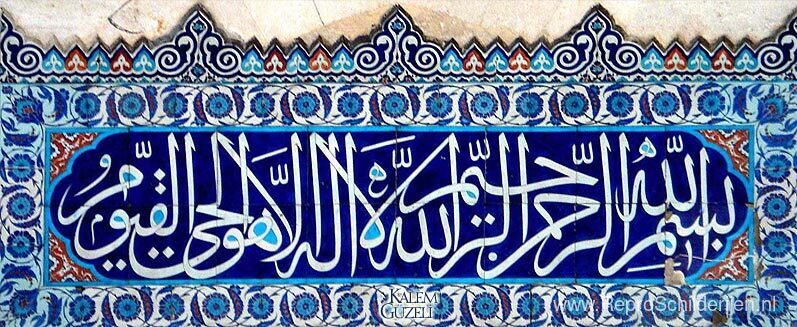 بسم الله الرحمن الرحيم الله لا اله الا هو الحي القيوم
KALEM
GUZELI
www.ReproSchilderijen.nl